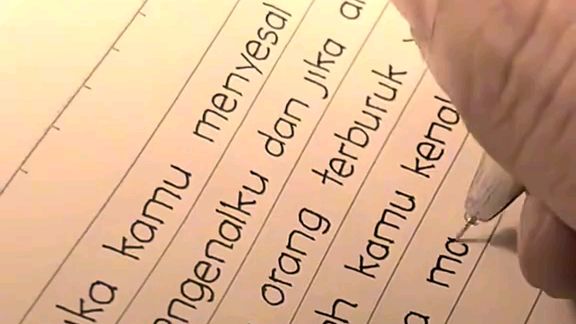 ka kamu menyesal
ngenalku dan jika a
orang terburuk
h kamu kenal
a ma